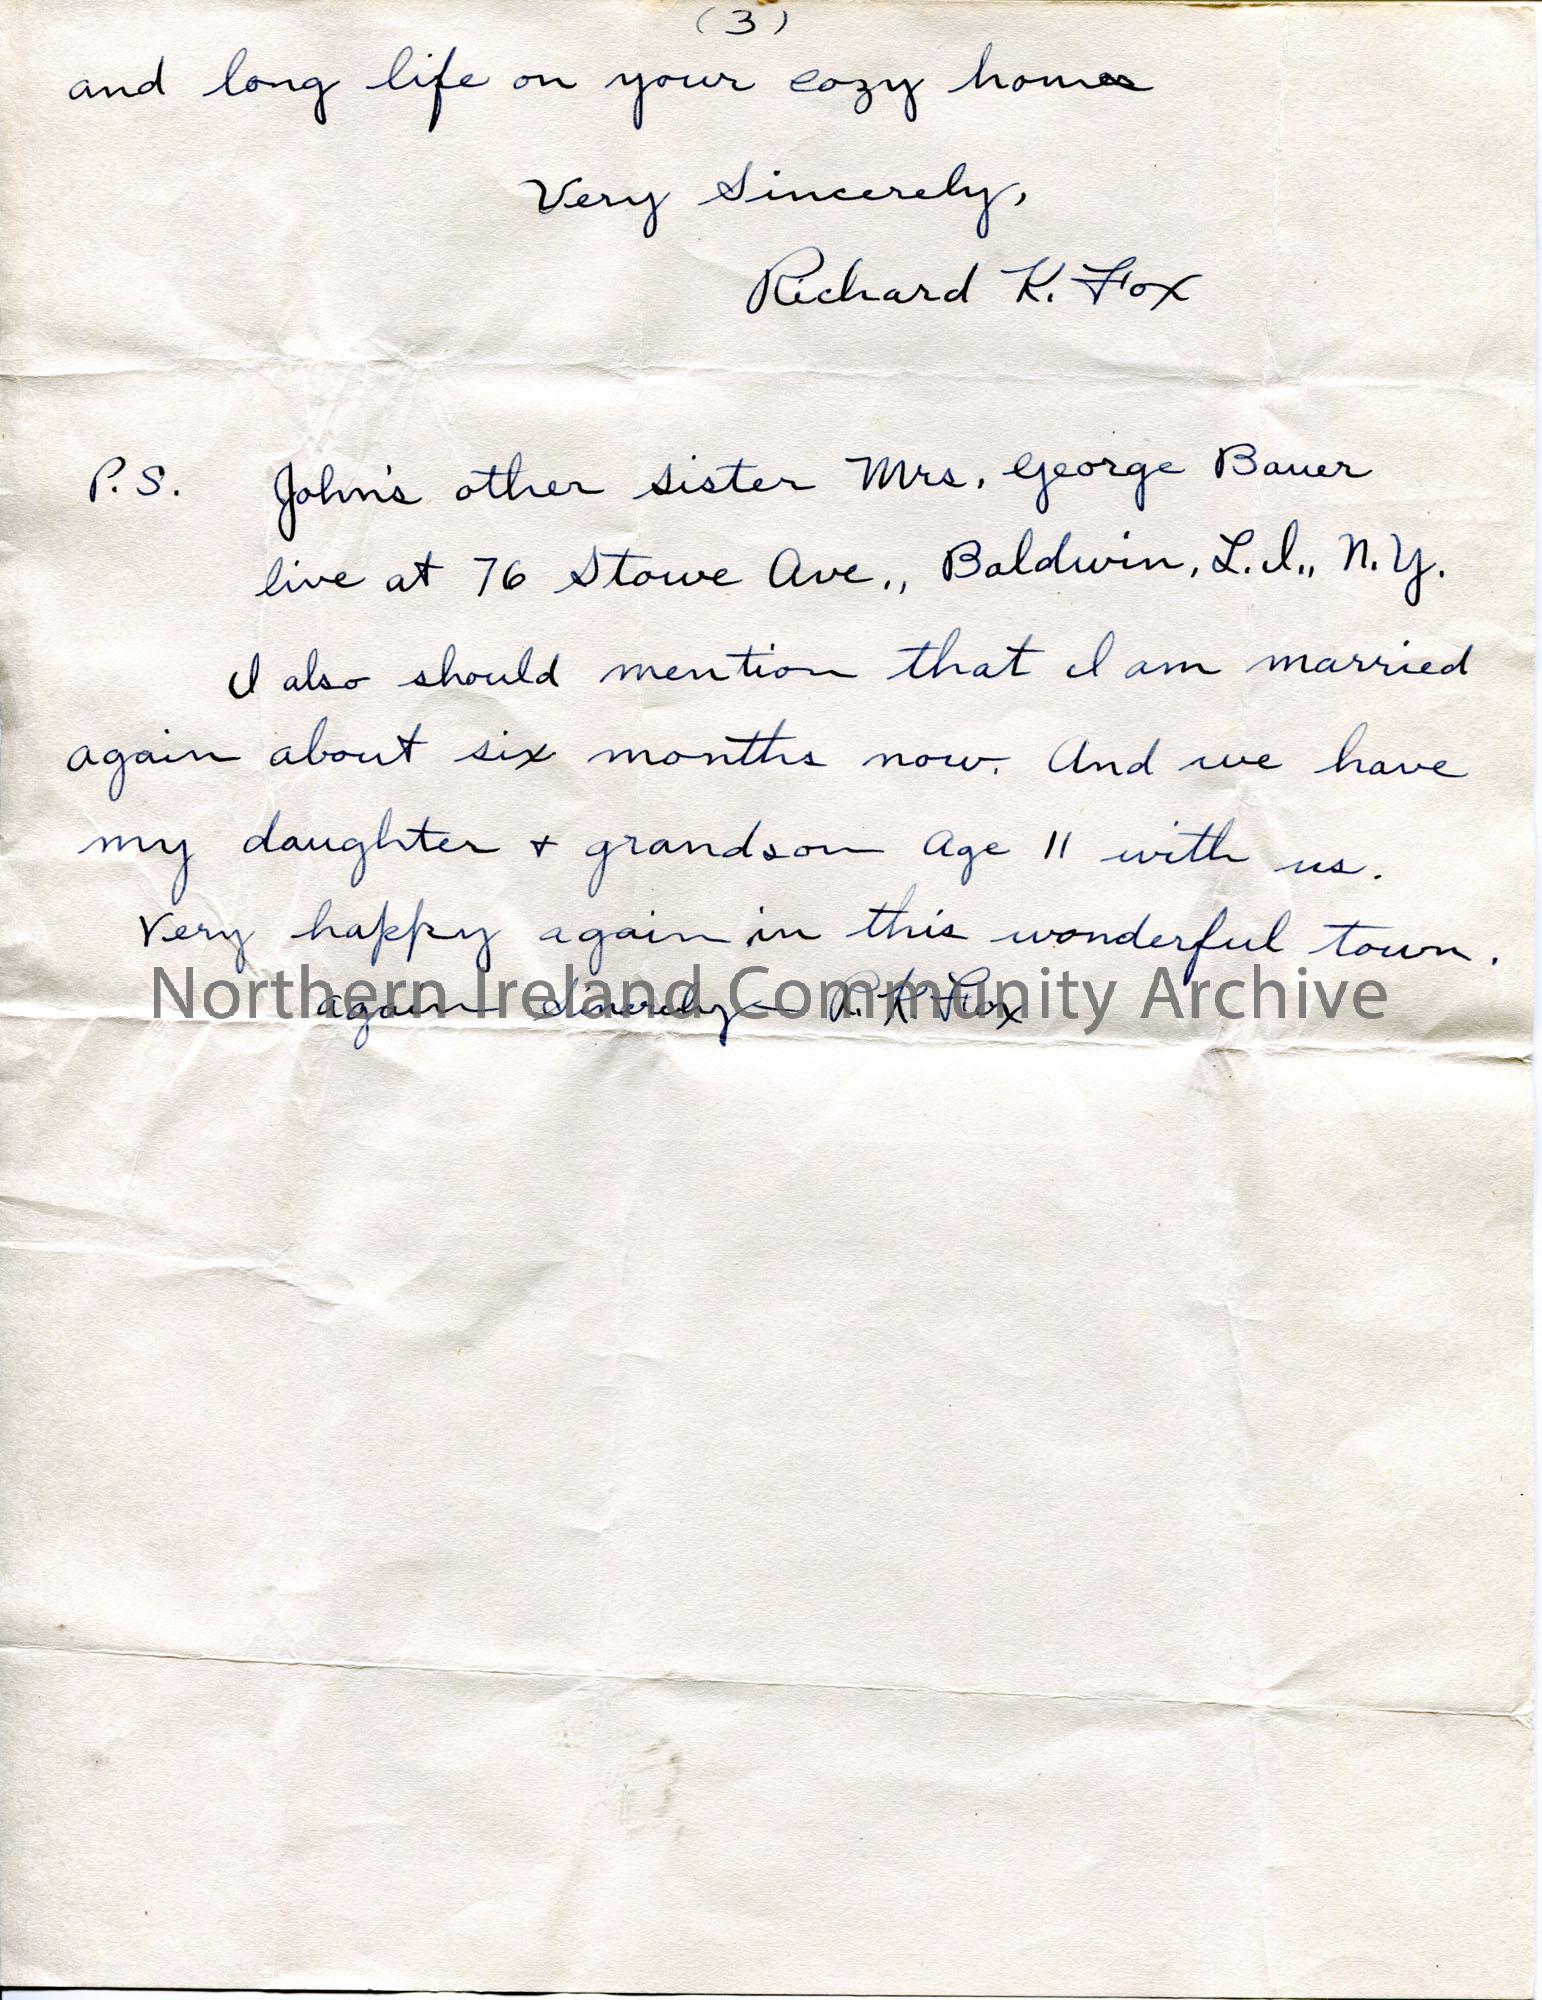 (3)
and long life on your cozy homes
Very Sincerely,
Richard K. Fox
P.S. John's other sister Mrs. George Bauer
live at 76 Stowe Ave., Baldwin, L.I., N.Y.
I also should mention that I am married
again about six months now. And we have
my daughter + grandson age 11 with us.
Very happy again in this wonderful town.
Northern Ireland Community Archive
again Sincerely – R. K. Fox